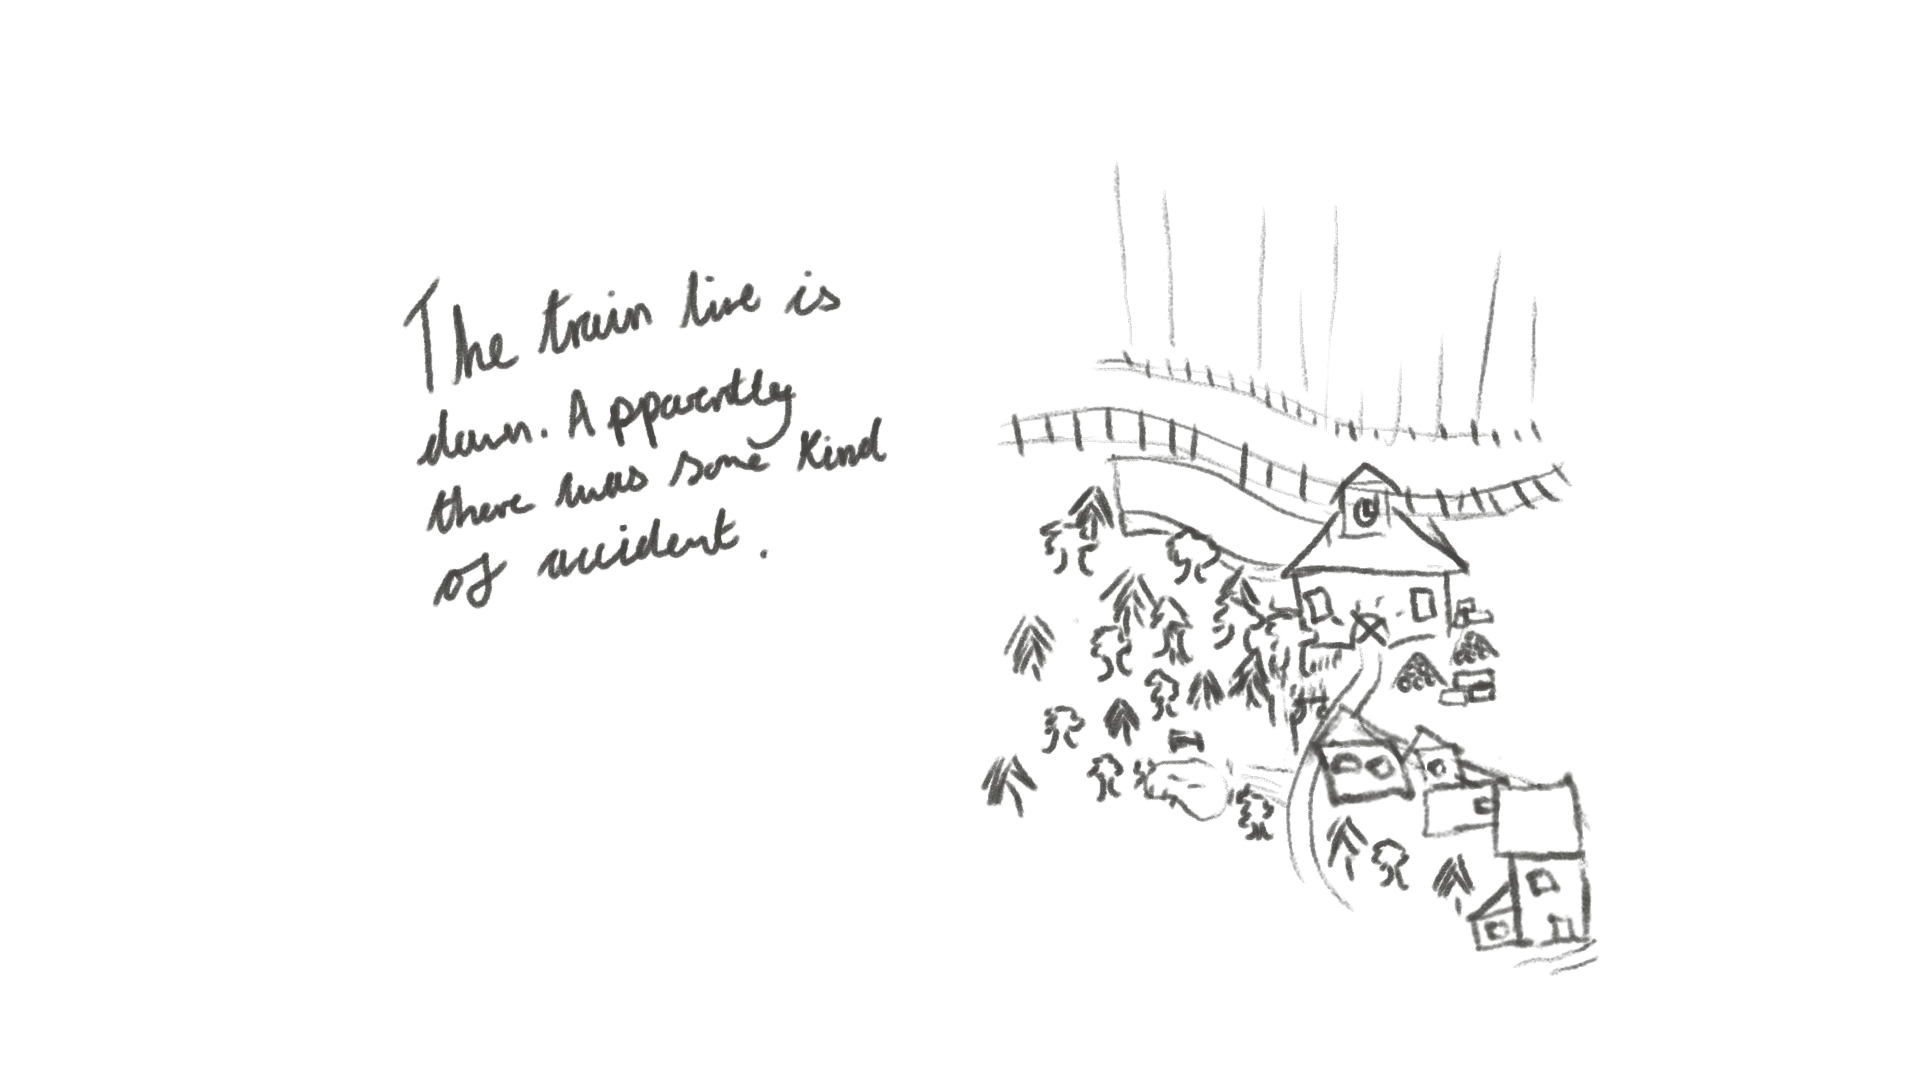 The train line is
down. Apparently
there was some kind
of accident.